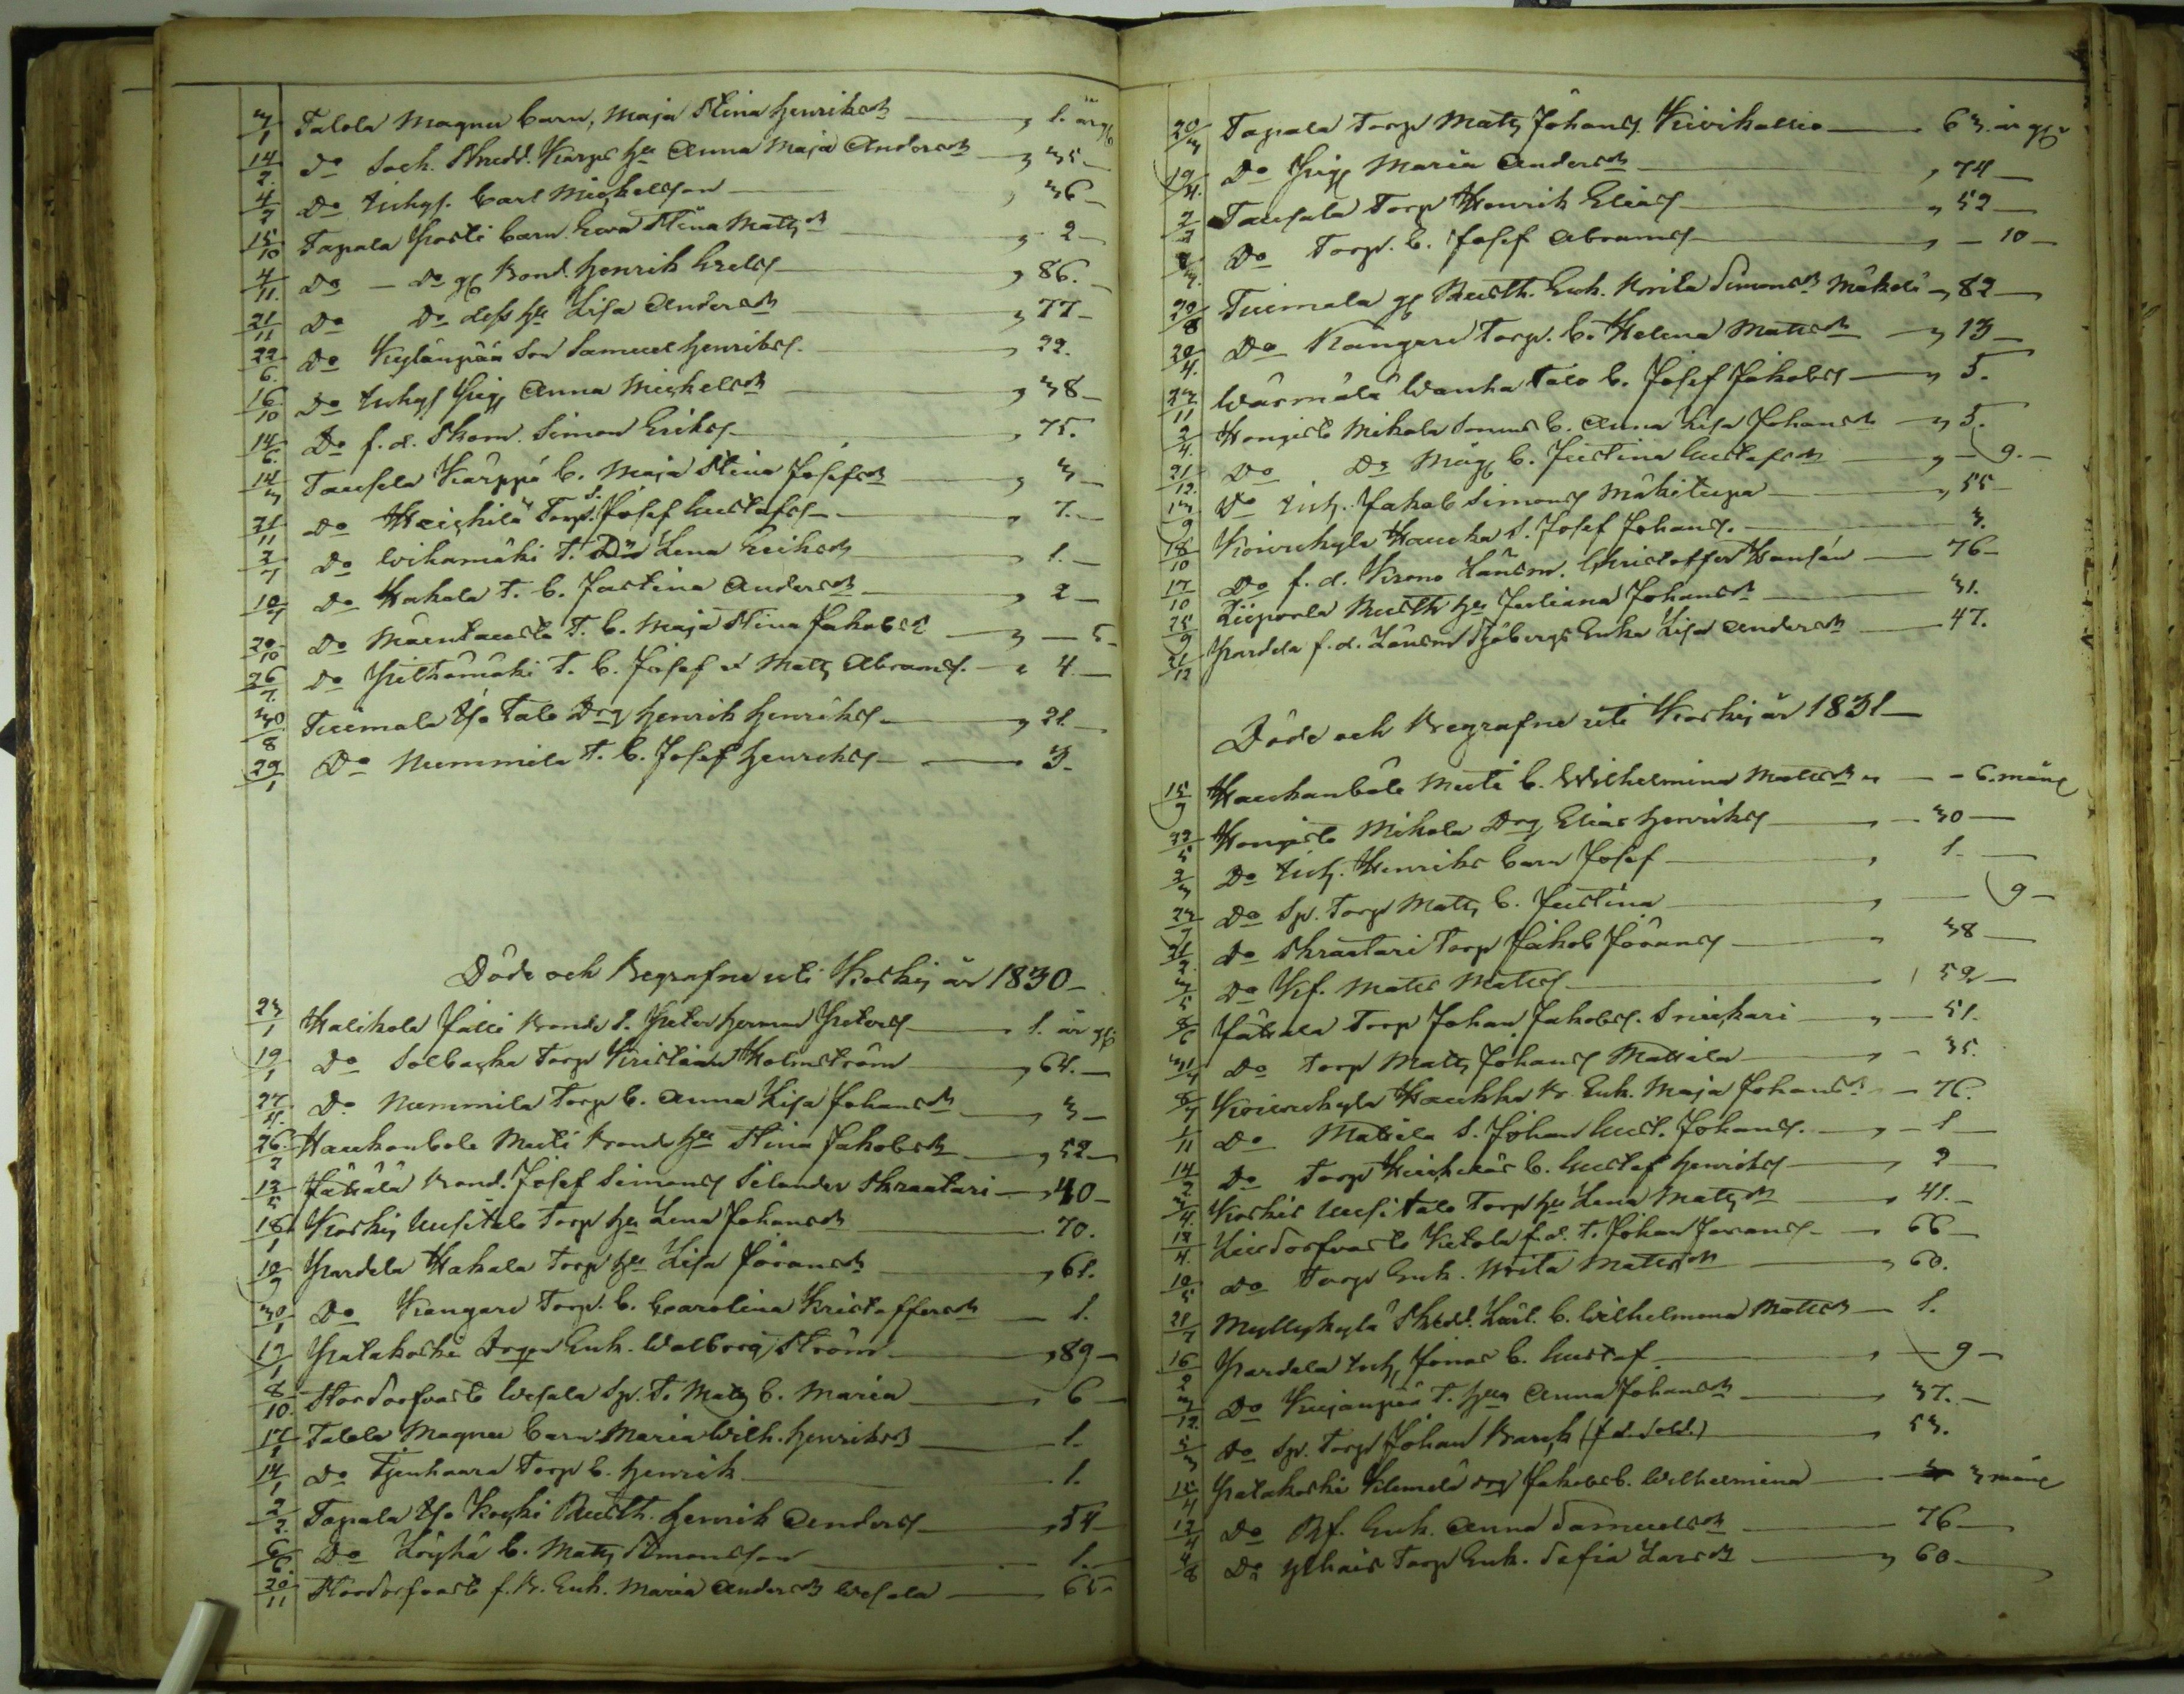 3/1 Talola Magnu barn, Maja Stina Henriksdr „ 1. år gl
14/2. Do Sock. Skredd. Karps hu Anna Maja Andersdr „ 35
4/7 Do Inhys. Carl Michelsson „ 36
15/10 Tapala Posti barn Ewa Stina Matsdr „ 2
4/11. Do Do gl Bond. Henrik Grels „ 86.
21/11 Do Do dess hu Lisa Andersdr „ 77
22/6. Do Kylänpää Son Samuel Henrikss. 22.
16/10 Do Inhys Pig Anna Michelsdr „ 38
14/6. Do f. d. Skom. Simon Eriks „ 75.
14/3 Tausela Karppi b. Maja Stina Josefsdr „ 3
21/11 Do Heickilä Torp. s. Josef Gustafs „ 7.
2/7 Do Wihamäki T. Lena Eriksdr 1.
10/7 Do Hakala T. b. Justina Andersdr „ 2
20/10 Do Mäentausta T. b. Maja Stina Jakobsd „ 5
26/7. Do Pilhamäki T. b. Josef o Mats Abrams. 4.
30/8 Tuimala Yso Talo Drg Henrik Henriks „ 21.
29/1 Do Nummila T. b. Josef Henriks 3.
Döde och Begrafne uti Koskis år 1830
23/1 Halikola Jalli Bonde s. Peter Herman Peters 1. år gl
19/1 Do Solbacka Torp Kristian Holmström „ 64.
27/4. Do Nummila Torp b. Anna Lisa Johansdr „ 3
26/2 Haukanbole Muti Bond hu Stina Jakobsdr „ 52
12/5 Jättälä Bond. Josef Simons Selander Skraatari 40
18/1 Koskis Uusitalo Torp hu Lena Johansdr 70.
10/9 Pardela Hakala Torp hu Lisa Jöransdr „ 61.
30/1 Do Kangare Torp. b. Carolina Kristoffersdr 1.
19/1 Patakoski Drgen Enk. Walborg Ström „ 89
8/10. Stordorfvasto Wesala Sp. T. Mats b. Maria 6
17/1 Talola Magnu barn Maria Wilh. Henriksd 1.
14/1 Do Tjenhaara Torp b. Henrik 1.
2/2. Tapala Yso Kocki Rusth. Henrik Anders „ 54
6/6. Do Löyhä b. Mats Simonsson 1.
20/11 Stordorfvasto f. B. Enk. Maria Andersdr Wesala 65
20/3 Tapala Torp Mats Johans. Kivikallio 63. år gl
19/4. Do Pig Maria Andersdr „ 74
2/2 Tausala Torp Henrik Elias „ 52
Do Torp. b. Josef Abrams „ 10
20/8 Tuimala gl Rusth. Enk. Brita Simonsdr Mäkelä „ 82
20/4. Do Kangare Torp. b. Helena Matsdr „ 13
23/11 Wärmälä Wanha Talo b. Josef Jakobs „ 5.
2/4. Hongisto Mikola Sonens b. Anna Lisa Johansdr „ 5.
21/12. Do Do Mag b. Justina Gustafsdr „ 9.
13/9 Do Inh. Jakob Simons Mäkitupa „ 55
18/10 Koivukylä Hauka s. Josef Johans. 3.
17/10 Do f. d. Krono Länsm. Christoffer Hansén 76
25/9 Liipola Rusth hu Juliana Johansdr 31.
21/12 Pardela f. d. Länsm Sjöbergs Enka Lisa Andersdr 47.
Döde och Begrafne uti Koskis år 1831
15/9 Haukanböle Muti b. Wilhelmina Matsdr „ 6. mån
22/5 Hongisto Mikola Drg Elias Henriks „ 30
2/3 Do Inh. Henriks barn Josef „ 1.
23/7 Do Sp. Torp Mats b. Justina „ 9
21/2. Do Skraatari Torp Jakob Jörans „ 38
3/5 Do Kf. Mats Mats „ 52
8/6 Jättala Torp Johan Jakobs. Snickari „ 51.
31/4 Do Torp Mats Johans Mattila „ 35.
6/7 Koivukylä Haukka B. Enk. Maja Johansdr 76.
1/11 Do Mattila s. Johan Gust. Johans. „ 1
14/2. Do Torp b. Gustaf Henriks „ 2
2/4. Koskis Uusitalo Torp hu Lena Matsdr „ 41.
18/4. Liudorfvasto Ketola f. d. T. Johan Jörans 66
10/5 Do Torp Enk. Brita Matsdr „ 60.
21/7 Myllykylä Skredd. b. Wilhelmina Matsdr 1.
16/2 Pardela Inh Jonas b. Gustaf „ 9
3/12. Do Kujanpää T. hu Anna Johansdr „ 37.
5/3 Do Sp. Torp Johan Barck (f. d. Sold.) „ 53.
15/4 Patakoski Klemelä drg Jakobs b. Wilhelmina 3 mån
12/4 Do Bf. Enk. Anna Samuelsdr 76
4/8 Do Ylhäis Torp Enk. Sofia Larsdr „ 60